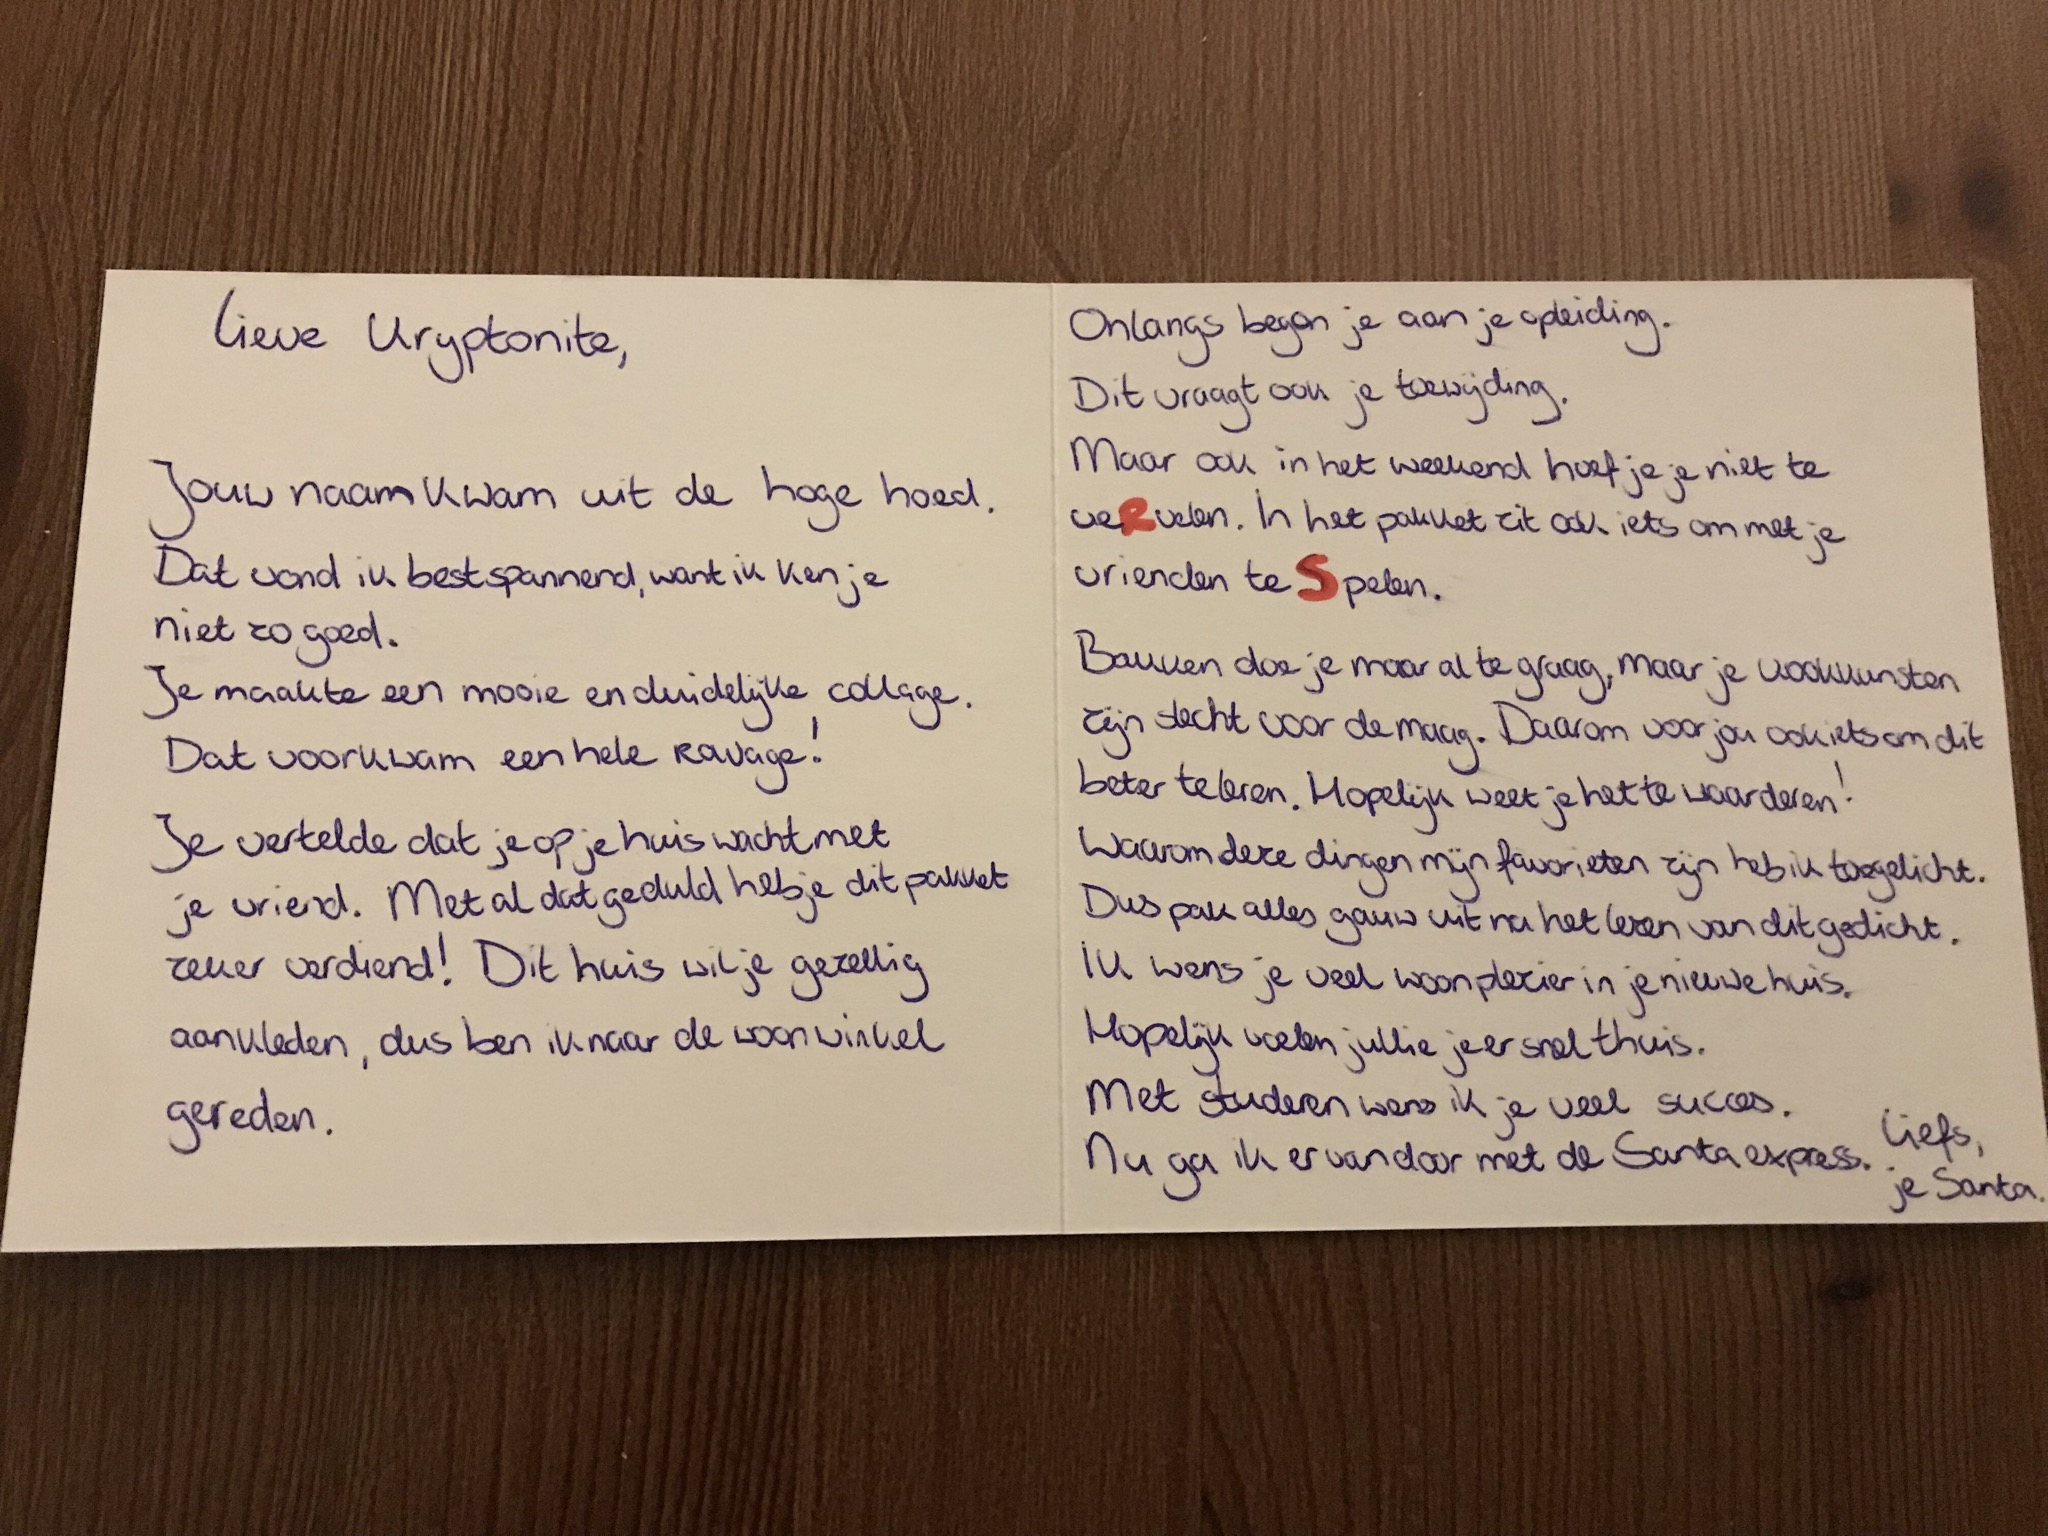 Lieve Kryptonite,
Jouw naam kwam uit de hoge hoed.
Dat vond ik best spannend, want ik ken je
niet zo goed.
Je maakte een mooie en duidelijke collage.
Dat voorkwam een hele ravage!
Je vertelde dat je op je huis wacht met
je vriend. Met al dat geduld heb je dit pakket
zeker verdiend! Dit huis wil je gezellig
aankleden, dus ben ik naar de woonwinkel
gereden.
Onlangs begon je aan je opleiding.
Dit vraagt ook je toewijding.
Maar ook in het weekend hoef je je niet te
veRvelen. In het pakket zit ook iets om met je
vrienden te Spelen.
Bakken doe je maar al te graag, maar je kookkunsten
zijn slecht voor de maag. Daarom voor jou ook iets om dit
beter te leren. Hopelijk weet je het te waarderen!
Waarom deze dingen mijn favorieten zijn heb ik toegelicht.
Dus pak alles gauw uit na het lezen van dit gedicht.
Ik wens je veel woonplezier in je nieuwe huis.
Hopelijk voelen jullie je er snel thuis.
Met studeren wens ik je veel succes.
Nu ga ik er vandoor met de Santa express.
Liefs,
je Santa.